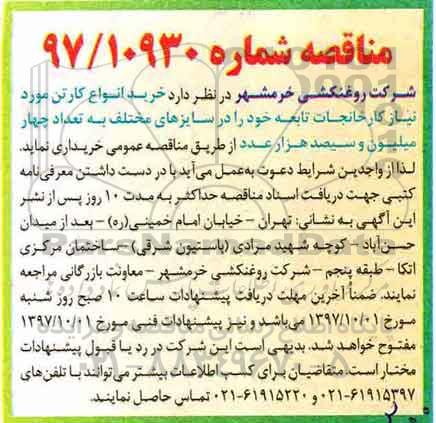 مناقصه شماره ۹۷/۱۰۹۳۰
شرکت روغنکشی خرمشهر در نظر دارد خرید انواع کارتن مورد
نیاز کارخانجات تابعه خود را در سایزهای مختلف به تعداد چهار
میلیون و سیصد هزار عدد از طریق مناقصه عمومی خریداری نماید.
لذا از واجدین شرایط دعوت به‌عمل می‌آید با در دست داشتن معرفی‌نامه
کتبی جهت دریافت اسناد مناقصه حداکثر به مدت ۱۰ روز پس از نشر
این آگهی به نشانی: تهران – خیابان امام خمینی(ره) – بعد از میدان
حسن‌آباد – کوچه شهید مرادی (پاستیون شرقی) – ساختمان مرکزی
اتکا – طبقه پنجم – شرکت روغنکشی خرمشهر – معاونت بازرگانی مراجعه
نمایند. ضمناً آخرین مهلت دریافت پیشنهادات ساعت ۱۰ صبح روز شنبه
مورخ ۱۳۹۷/۱۰/۰۱ می‌باشد و نیز پیشنهادات فنی مورخ ۱۳۹۷/۱۰/۰۱
مفتوح خواهد شد. بدیهی است این شرکت در رد یا قبول پیشنهادات
مختار است. متقاضیان برای کسب اطلاعات بیشتر می‌توانند با تلفن‌های
۰۲۱-۶۱۹۱۵۳۹۷ و ۰۲۱-۶۱۹۱۵۲۲۰ تماس حاصل نمایند.